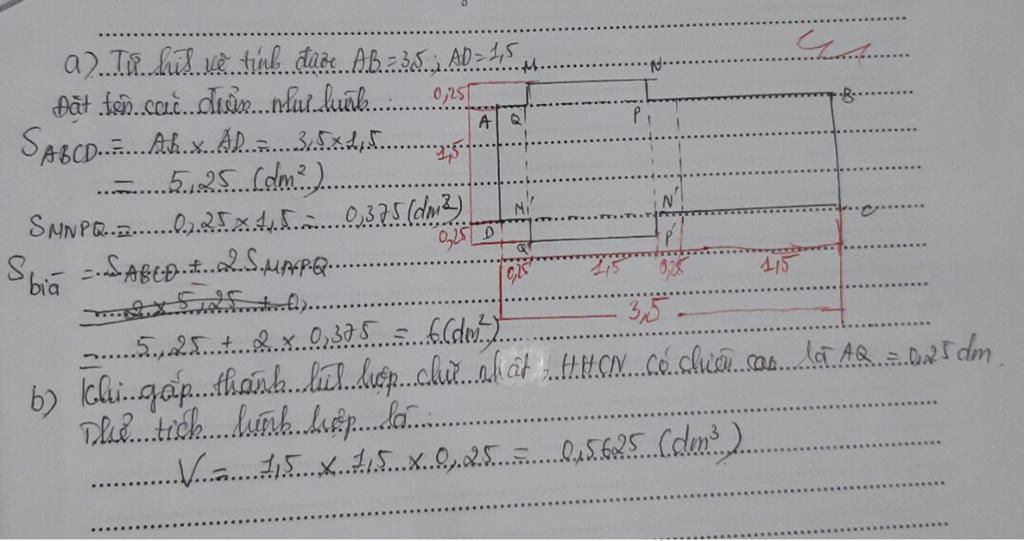 a) Từ hình vẽ tính được AB = 3,5; AD = 1,5
Đặt tên các điểm như hình:
S ABCD = AB x AD = 3,5 x 1,5
= 5,25 (dm²)
S MNPQ = 0,25 x 1,5 = 0,375 (dm²)
S bìa = S ABCD + 2 S MNPQ
= 2 x 5,25 + 0,
= 5,25 + 2 x 0,375 = 6 (dm²)
b) Khi gấp thành hình hộp chữ nhật, HHCN có chiều cao là AQ = 0,25 dm.
Thể tích hình hộp là:
V = 1,5 x 1,5 x 0,25 = 0,5625 (dm³)
M N
0,25
A Q P B
1,5
N' N' C
0,25 D Q' P'
0,25 1,5 0,25 1,5
3,5